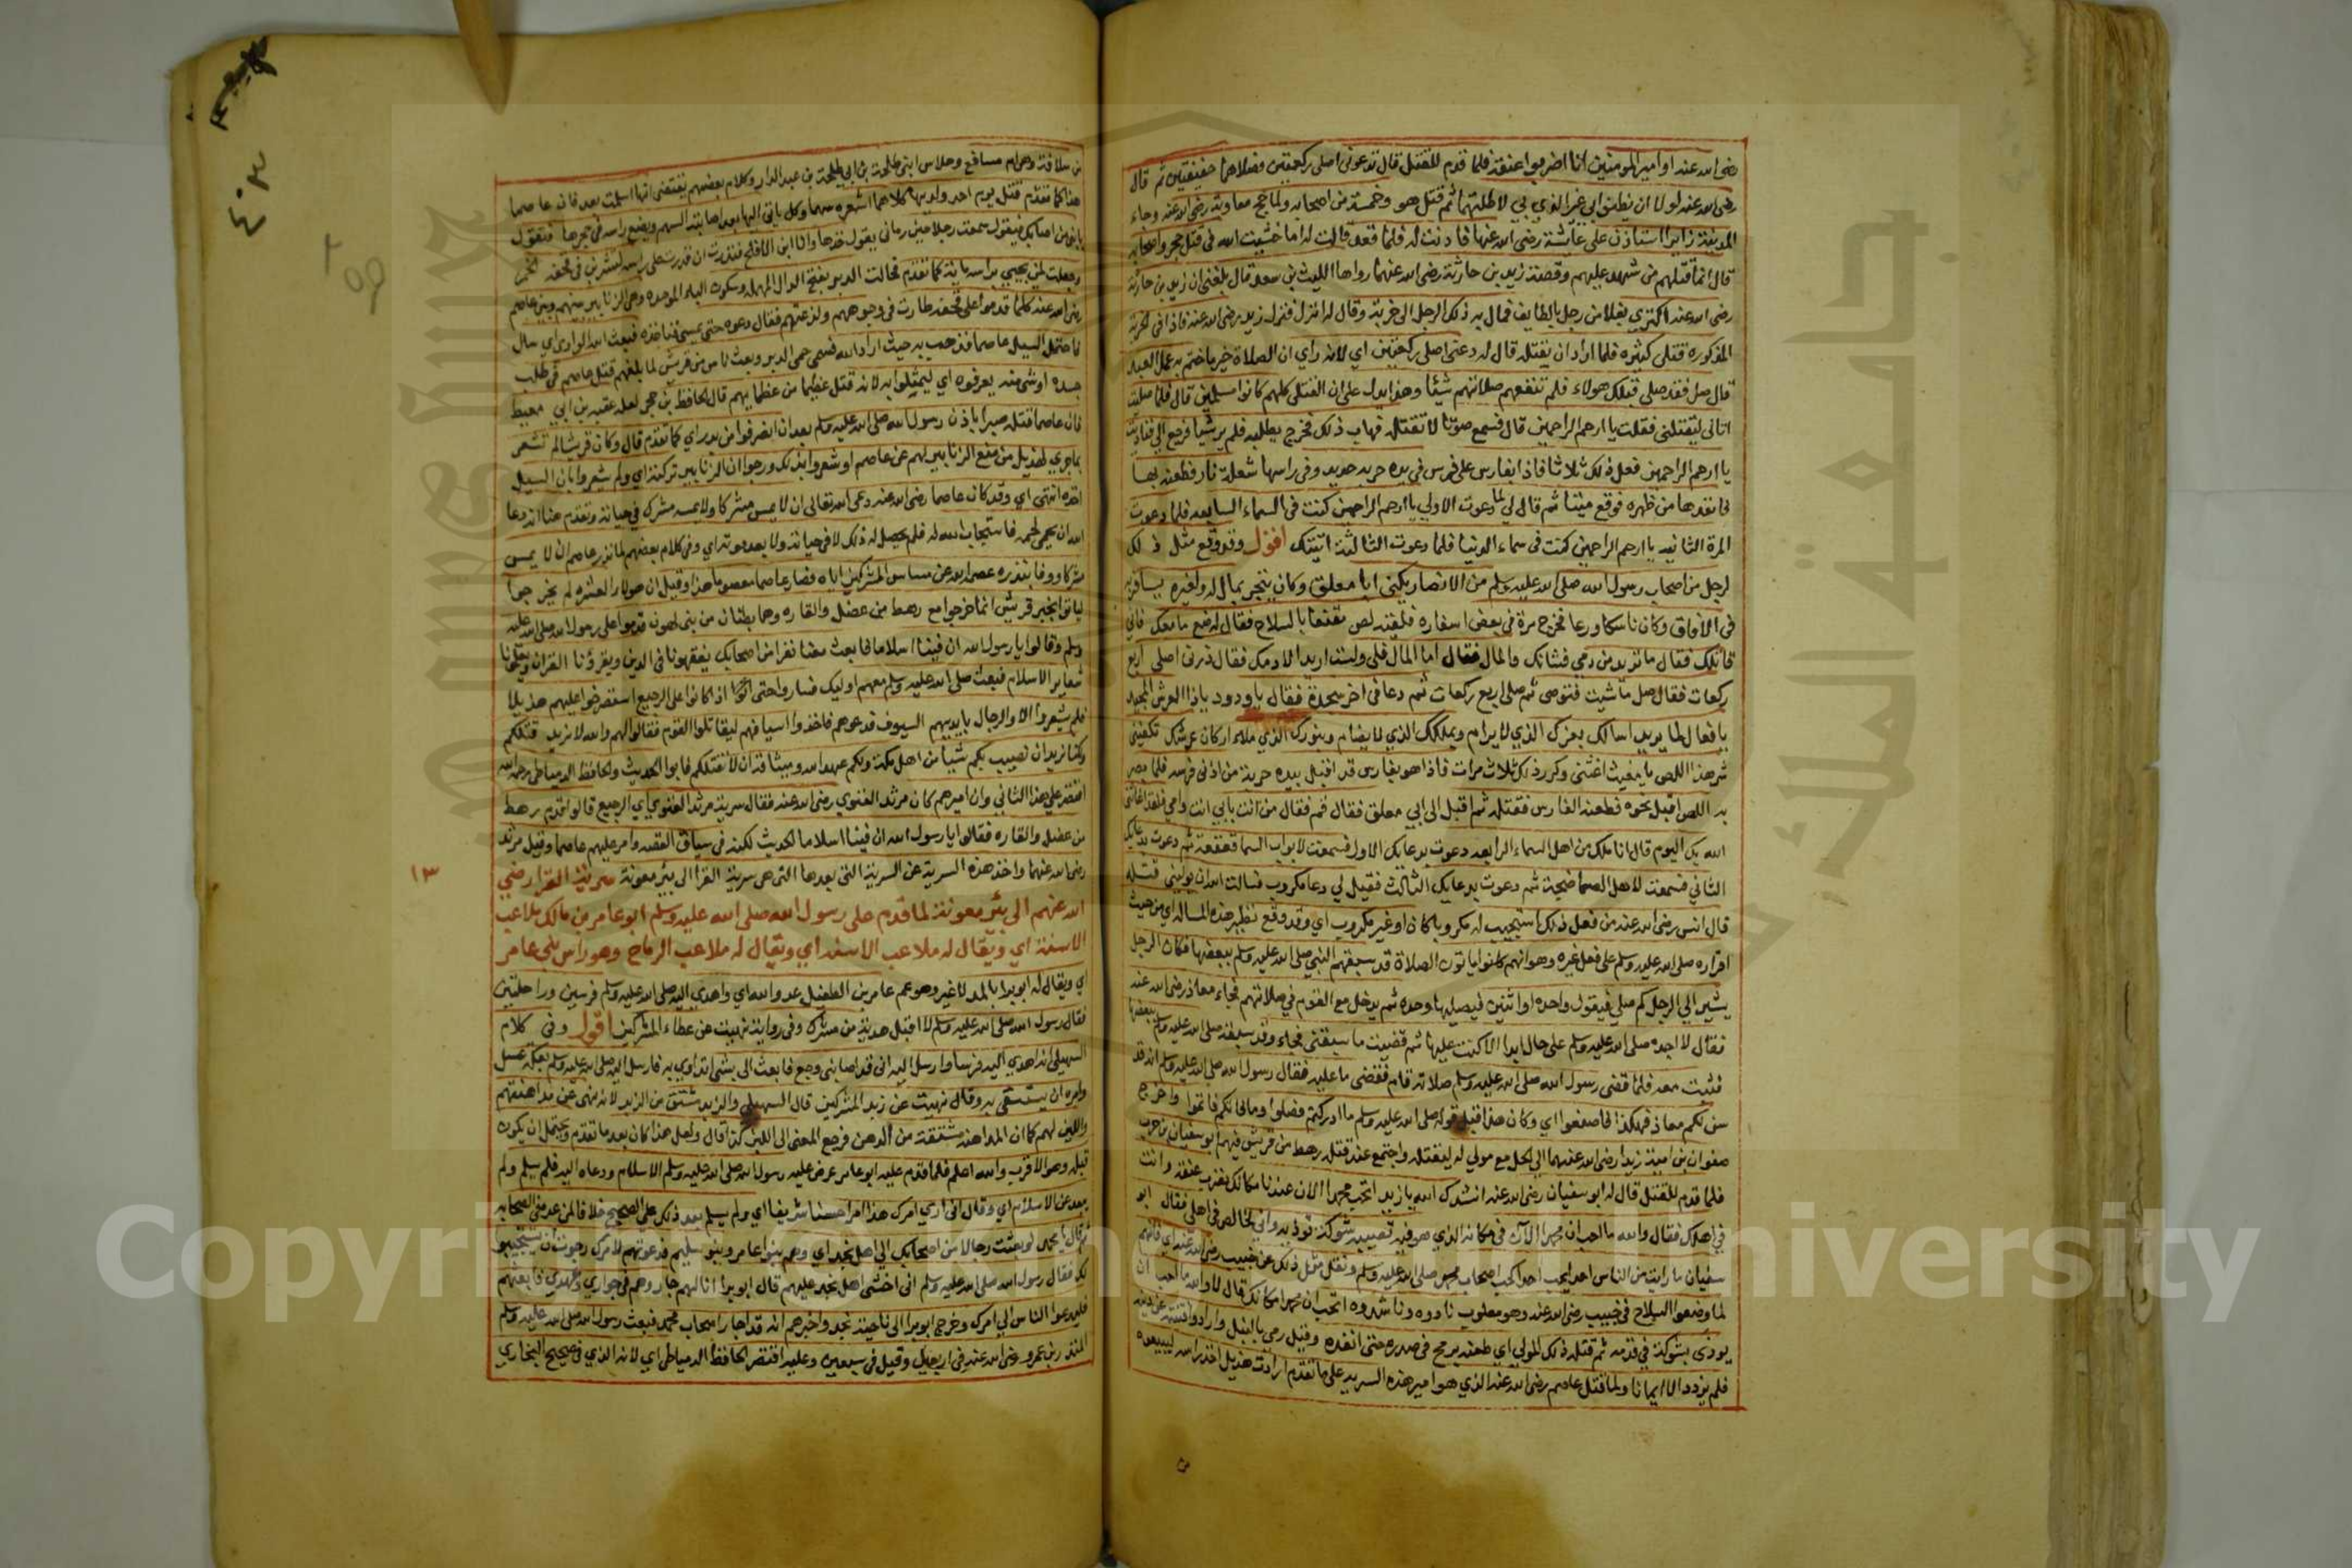 رضي الله عنه او امير المومنين انا اضربوا عنقه فلما قدم للقتل قال دعوني اصلي ركعتين فصلاهما خفيفتين ثم قال
رضي الله عنه لولا ان تظنوا بي غير الذي بي لاطلتهما ثم قتل هو وخمسة من اصحابه ولما حج معاوية رضي الله عنه وجاء
المدينة زايرا استاذن على عايشة رضي الله عنها فاذنت له فلما قعد قالت له اما خشيت الله في قتل حجر واصحابه
قال انما قتلهم من شهد عليهم وقصة زيد بن حارثة رضي الله عنهما رواها الليث بن سعد قال بلغني ان زيد بن حارثة
رضي الله عنه اكترى بغلا من رجل بالطايف فمال به ذلك الرجل الى خربة وقال له انزل فنزل زيد رضي الله عنه فاذا في الخربة
المذكورة قتلى كثيره فلما اراد ان يقتله قال له دعني اصلي ركعتين اي لانه راي ان الصلاة خير ما ختم به عمل العبد
قال صل فقد صلى قبلك هولاء فلم تنفعهم صلاتهم شيئا وهذا يدل على ان القتلى كلهم كانوا مسلمين قال فلما صليت
اتاني ليقتلني فقلت يا ارحم الراحمين قال فسمع صوتا لا تقتله فهاب ذلك فخرج يطلبه فلم ير شيا فرجع الي فناديت
يا ارحم الراحمين فعل ذلك ثلاثا فاذا بفارس على فرس في يده حربة حديد وفي راسها شعلة نار فطعنه بها
فانفذها من ظهره فوقع ميتا ثم قال لي لما دعوت الاولى يا ارحم الراحمين كنت في السماء السابعه فلما دعوت
المرة الثانيه يا ارحم الراحمين كنت في سماء الدنيا فلما دعوت الثالثة اتيتك اقول وقد وقع مثل ذلك
لرجل من اصحاب رسول الله صلى الله عليه وسلم من الانصار يكنى ابا معلق وكان يتجر بمال له ولغيره يسافر به
في الافاق وكان ناسكا ورعا فخرج مرة في بعض اسفاره فلقيه لص مقنعا بالسلاح فقال له ضع ما معك فاني
قاتلك فقال ما تريد من دمي فشانك والمال فقال اما المال فلي ولست اريد الا دمك فقال ذرني اصلي اربع
ركعات فقال صل ما شيت فتوضى ثم صلى اربع ركعات ثم دعا في اخر سجدة فقال يا ودود يا ذا العرش المجيد
يا فعال لما يريد اسالك بعزك الذي لا يرام وبملكك الذي لا يضام وبنورك الذي ملا اركان عرشك تكفيني
شر هذا اللص يا مغيث اغثني وكرر ذلك ثلاث مرات فاذا هو بفارس قد اقبل بيده حربة من اذني فرسه فلما بصر
به اللص اقبل نحوه فطعنه الفارس فقتله ثم اقبل الى ابي معلق فقال قم فقال من انت بابي انت وامي فلقد اغاثني
الله بك اليوم قال انا ملك من اهل السماء الرابعه دعوت بدعايك الاول فسمعت لابواب السما قعقعة ثم دعوت بدعايك
الثاني فسمعت لاهل السما ضجيجة ثم دعوت بدعايك الثالث فقيل لي دعا مكروب فسالت الله ان يوليني قتله
قال انس رضي الله عنه من فعل ذلك استجيب له مكروبا كان او غير مكروب اي وقد وقع نظير هذه المسالة اي من حيث
اقراره صلى الله عليه وسلم على فعل غيره وهو انهم كانوا ياتون الصلاة قد سبقهم النبي صلى الله عليه وسلم ببعضها فكان الرجل
يشير الي الرجل كم صلي فيقول واحده او اثنين فيصليها وحده ثم يدخل مع القوم في صلاتهم فجاء معاذ رضي الله عنه
فقال لا اجده صلى الله عليه وسلم على حال ابدا الا كنت عليها ثم قضيت ما سبقني فجاء وقد سبقه صلى الله عليه وسلم ببعضها
فثبت معه فلما قضى رسول الله صلى الله عليه وسلم صلاته قام فقضى ما عليه فقال رسول الله صلى الله عليه وسلم انه قد
سن لكم معاذ فهكذا فاصنعوا اي وكان هذا قبل قوله صلى الله عليه وسلم ما ادركتم فصلوا وما فاتكم فاتموا واخرج
صفوان بن امية زيدا رضي الله عنهما الى الحل مع مولي له ليقتله واجتمع عند قتله رهط من قريش فيهم ابو سفيان بن حرب
فلما قدم للقتل قال له ابو سفيان رضي الله عنه انشدك الله يا زيد اتحب محمدا الان عندنا مكانك نضرب عنقه وانت
في اهلك فقال والله ما احب ان محمدا الان في مكانه الذي هو فيه تصيبه شوكة توذيه واني لجالس في اهلي فقال ابو
سفيان ما رايت من الناس احدا يحب احدا كحب اصحاب محمد صلى الله عليه وسلم ونقل مثل ذلك عن خبيب رضي الله عنه اي فانهم
لما وضعوا السلاح في خبيب رضي الله عنه وهو مصلوب نادوه وناشدوه اتحب ان محمدا مكانك قال لا والله ما احب ان
يوذى بشوكة في قدمه ثم قتله ذلك المولي اي طعنه برمح في صدره حتى انفذه وقيل رمي بالنبل وارادوا فتنته عن دينه
فلم يزدد الا ايمانا ولما قتل عاصم رضي الله عنه الذي هو امير هذه السريه على ما تقدم ارادت هذيل اخذ راسه ليبيعوه
من سلافة وهي ام مسافع وجلاس ابني طلحة بن ابي طلحة بن عبد الدار وكلام بعضهم يقتضي انها اسلمت بعد فان عاصما
هذا كما تقدم قتل يوم احد ولديها كلاهما اشعره سهما وكل ياتي اليها بعد اصابته السهم ويضع راسه في حجرها فتقول
يا بني من اصابك فيقول سمعت رجلا حين رماني يقول خذها وانا ابن الاقلح فنذرت ان قدرت على راسه لتشربن في قحفه الخمر
وجعلت لمن يجيي براسه ماية كما تقدم فحالت الدبر بفتح الدال المهملة وسكون الباء الموحده وهي الزنابير بينهم وبين عاصم
رضي الله عنه كلما قدموا على قحفه طارت في وجوههم ولدغتهم فقال دعوه حتى يمسي فناخذه فبعث الله الوادي اي سال
فاحتمل السيل عاصما فذهب به حيث اراد الله فسمي حمى الدبر وبعث ناس من قريش لما بلغهم قتل عاصم في طلب
جسده او شي منه يعرفوه اي ليمثلوا به لانه قتل عظيما من عظمايهم قال الحافظ بن حجر لعله عقبة بن ابي معيط
فان عاصما قتله صبرا باذن رسول الله صلى الله عليه وسلم بعد ان انصرفوا من بدر اي كما تقدم قال وكان قريشا لم تشعر
بما جرى لهذيل من منع الزنابير لهم عن عاصم او شعروا بذلك ورجوا ان الزنابير تركته اي ولم يشعروا بان السيل
اخذه انتهى اي وقد كان عاصما رضي الله عنه دعى الله تعالى ان لا يمس مشركا ولا يمسه مشرك في حياته وتقدم عنا انه دعا
الله ان يحمي لحمه فاستجاب الله له فلم يحصل له ذلك لا في حياته ولا بعد موته اي وفي كلام بعضهم لما نذر عاصم ان لا يمس
مشركا ووفا بنذره عصمه الله عن مساس المشركين اياه فصار عاصما معصوما هذا وقيل ان هولاء العشره لم يخرجوا
لياتوا بخبر قريش انما خرجوا مع رهط من عضل والقاره وهما بطنان من بني الهون قدموا على رسول الله صلى الله عليه
وسلم وقالوا يا رسول الله ان فينا اسلاما فابعث معنا نفرا من اصحابك يفقهونا في الدين ويقرؤنا القران ويعلمونا
شعاير الاسلام فبعث صلى الله عليه وسلم معهم اوليك فساروا حتى اذا كانوا على الرجيع استصرخوا عليهم هذيلا
فلم يشعروا الا والرجال بايديهم السيوف قد عوهم فاخذوا اسيافهم ليقاتلوا القوم فقالوا لهم والله لا نريد قتلكم
ولكنا نريد ان نصيب بكم شيا من اهل مكة ولكم عهد الله وميثاقه ان لا نقتلكم فابوا الحديث والحافظ الدمياطي رحمه الله
اقتصر على هذا الثاني وان اميرهم كان مرثد الغنوي رضي الله عنه فقال سرية مرثد الغنوي الي الرجيع قالوا قدم رهط
من عضل والقاره فقالوا يا رسول الله ان فينا اسلاما الحديث لكنه في سياق القصه وامر عليهم عاصما وقيل مرثد
رضي الله عنهما واخذ هذه السرية عن السرية التي بعدها التي هي سرية القرا الى بئر معونة سرية القرا رضي
١٣
الله عنهم الى بئر معونة لما قدم على رسول الله صلى الله عليه وسلم ابو عامر بن مالك ملاعب
الاسنة اي ويقال له ملاعب الاسنه اي ويقال له ملاعب الرماح وهو راس بني عامر
اي ويقال له ابو برا بالمد لا غير وهو عم عامر بن الطفيل عدو الله اي واهدى اليه صلى الله عليه وسلم فرسين وراحلتين
فقال رسول الله صلى الله عليه وسلم لا اقبل هدية من مشرك وفي رواية نهيت عن عطاء المشركين اقول وفي كلام
السهيلي انه اهدي اليه فرسا وارسل اليه اني قد اصابني وجع فابعث الى بشي اتداوي به فارسل اليه صلى الله عليه وسلم بعكة عسل
وامره ان يستشفي به وقال نهيت عن زبد المشركين قال السهيلي والزبد مشتق من الزبد لانه نهى عن مداهنتهم
واللين لهم كما ان المداهنة مشتقة من الدهن فرجع المعنى الى اللين كذا قال ولعل هذا كان بعد ما تقدم ويحتمل ان يكون
قبله وهو الاقرب والله اعلم فلما قدم عليه ابو عامر عرض عليه رسول الله صلى الله عليه وسلم الاسلام ودعاه اليه فلم يسلم ولم
يبعد عن الاسلام اي وقال اني ارى امرك هذا امرا حسنا شريفا اي ولم يسلم بعد ذلك على الصحيح خلافا لمن عده في الصحابه
ثم قال يا محمد لو بعثت رجالا من اصحابك الي اهل نجد اي وهم بنوا عامر وبنو سليم فدعوتهم لامرك رجوت ان يستجيبوا
لك فقال رسول الله صلى الله عليه وسلم اني اخشى اهل نجد عليهم قال ابو برا انا لهم جار وهم في جواري وعهدي فابعثهم
فليدعوا الناس الي امرك وخرج ابو برا الى ناحية نجد واخبرهم انه قد اجار اصحاب محمد فبعث رسول الله صلى الله عليه وسلم
المنذر بن عمرو رضي الله عنه في اربعين وقيل في سبعين وعليه اقتصر الحافظ الدمياطي اي لانه الذي في صحيح البخاري
Copyright © King Saud University
جامعة الملك سعود